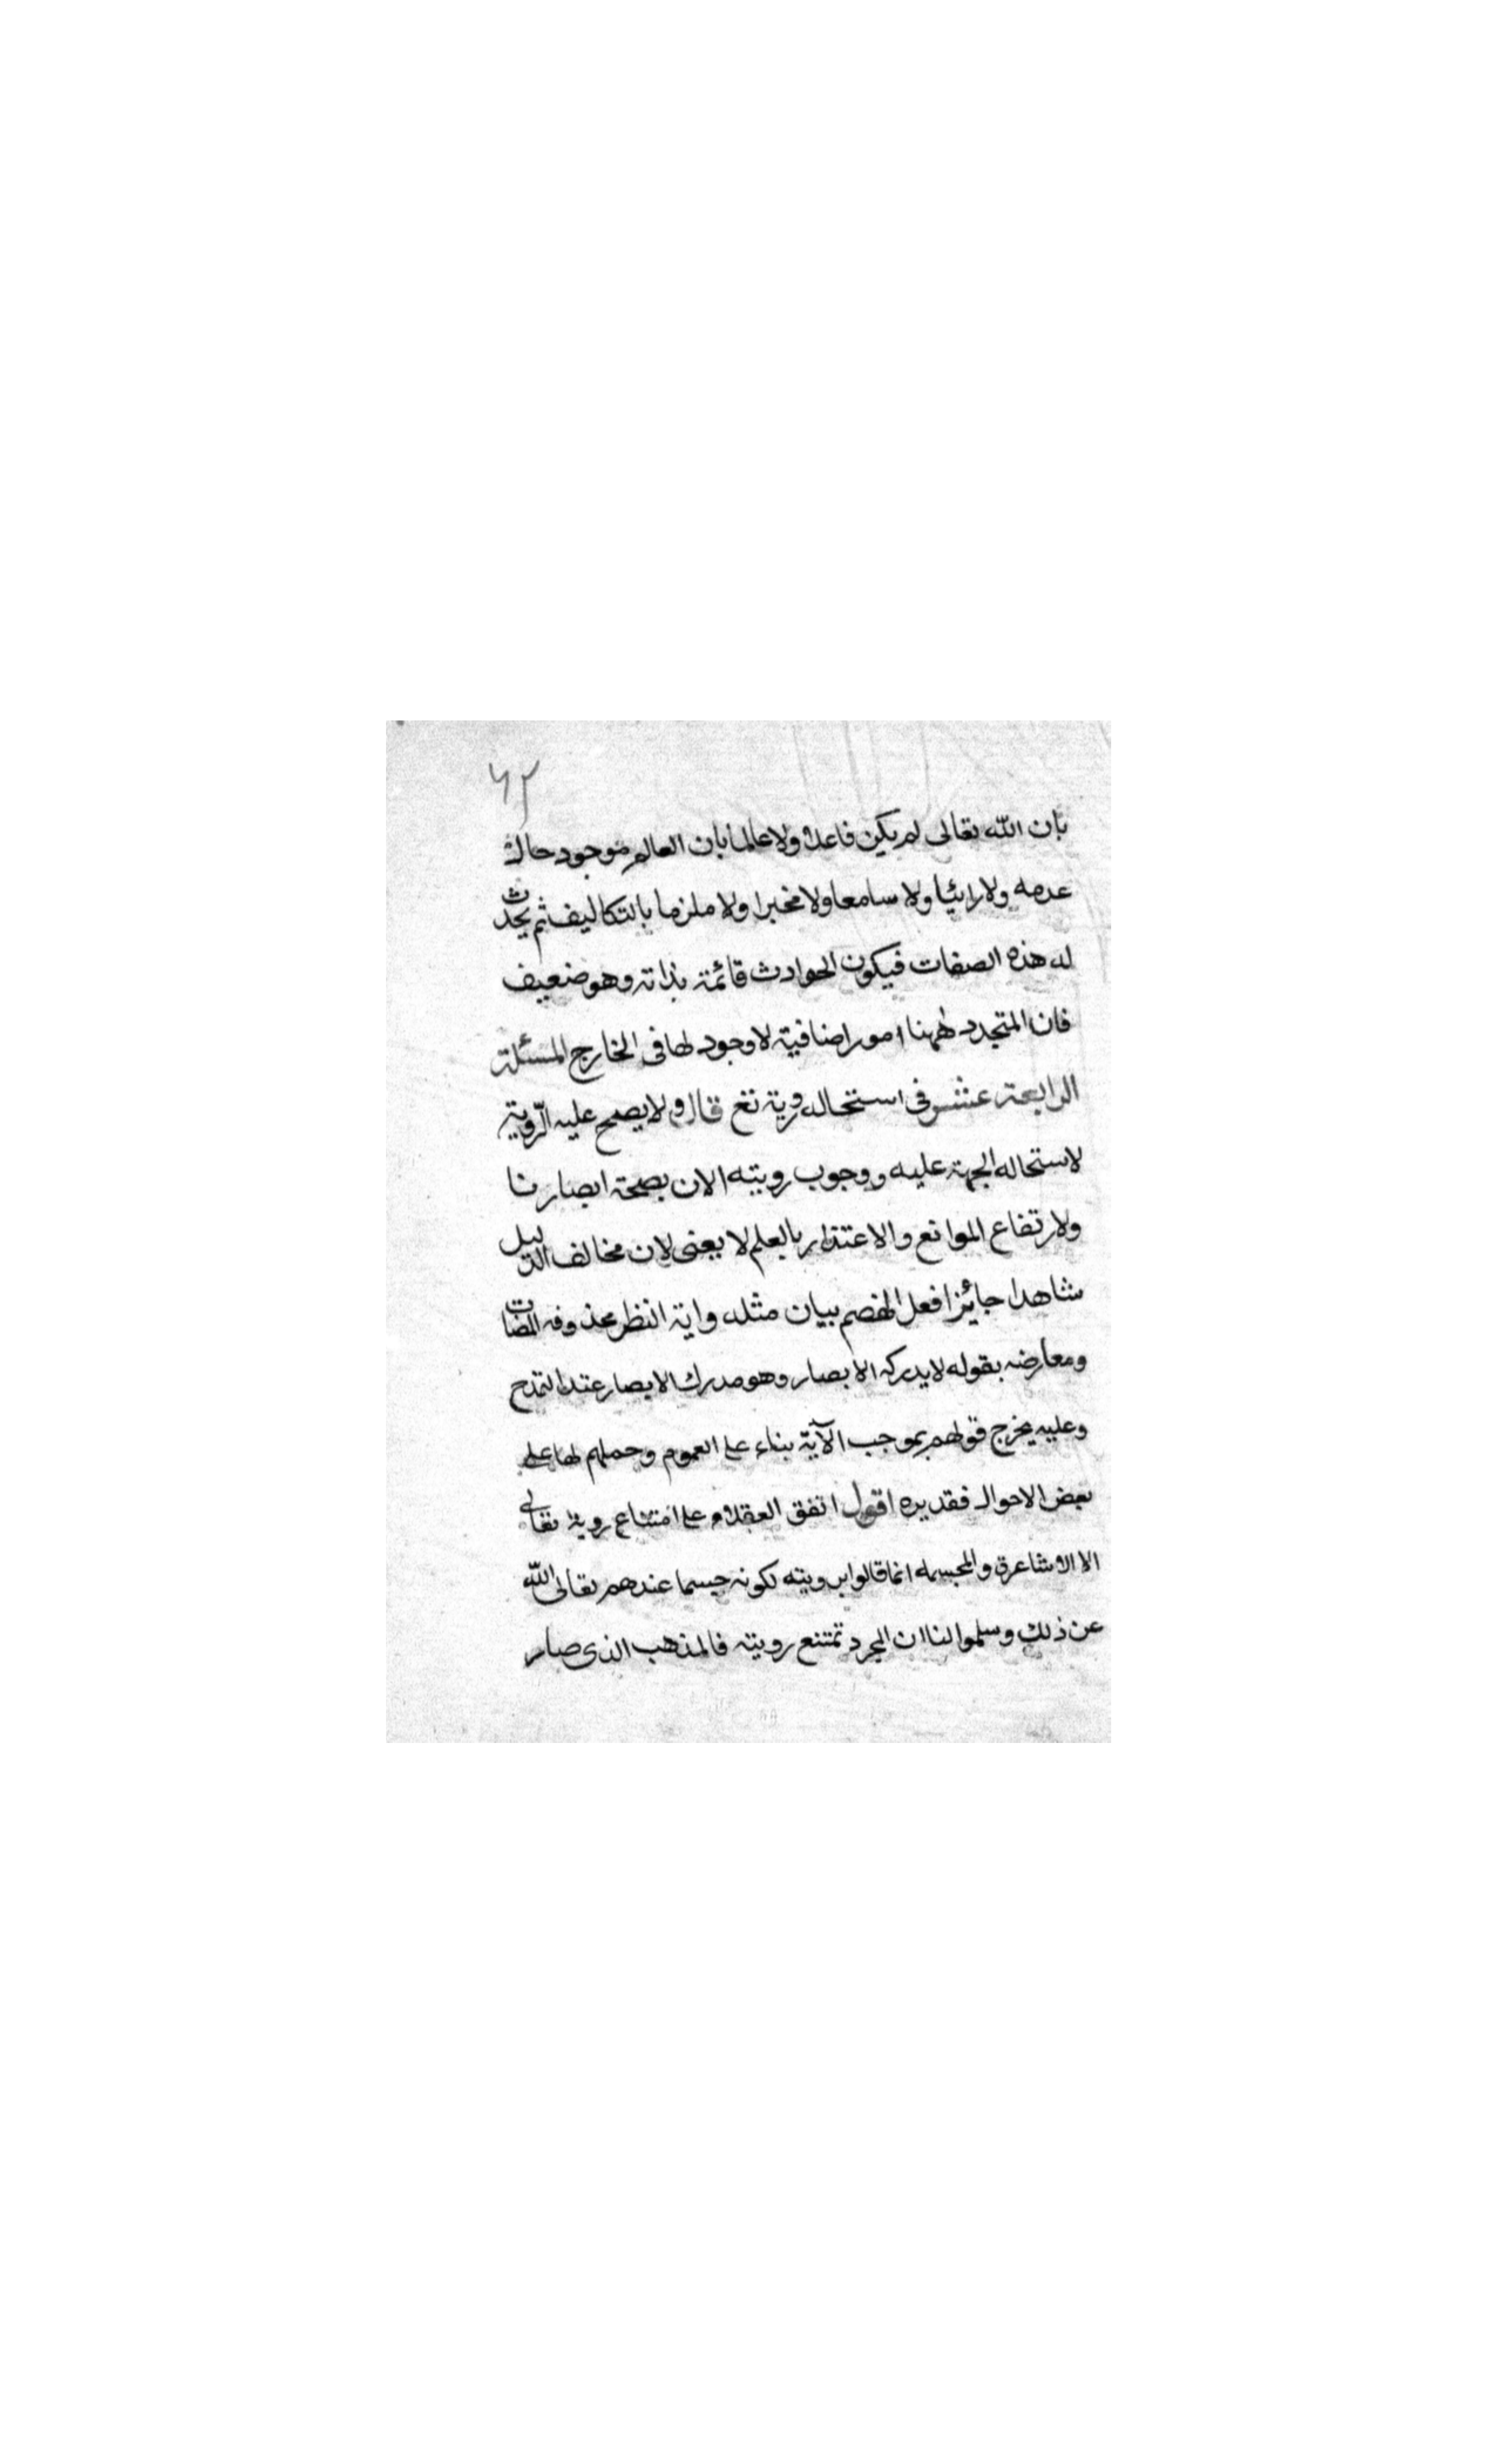 ٤٢
بان الله تعالى لم يكن فاعلا ولا عالما بان العالم موجود حالة
عدمه ولا رائيا ولا سامعا ولا مخبرا ولا ملزما بالتكاليف ثم يحدث
له هذه الصفات فيكون الحوادث قائمة بذاته وهو ضعيف
فان المتجدد ههنا امور اضافية لا وجود لها في الخارج المسئلة
الرابعة عشر في استحالة روية تع قال ولا يصح عليه الرّوية
لاستحاله الجهة عليه ووجوب رويته الان بصحة ابصارنا
ولارتفاع الموانع والاعتذار بالعلم لا يغنى لان مخالف الدليل
شاهدا جائز افعل الخصم بيان مثله واية النظر محذوفه المضاف
ومعارضه بقوله لا يدركه الابصار وهو مدرك الابصار عند التمدح
وعليه يخرج قولهم بموجب الآية بناء على العموم وحملهم لها على
بعض الاحوال فقديره اقول اتفق العقلاء على امتناع روية تعالى
الا الاشاعرة والمجسمه انما قالوا برويته لكونه جسما عندهم تعالى الله
عن ذلك وسلموا لنا ان المجرد تمتنع رويته فالمذهب الذى صار